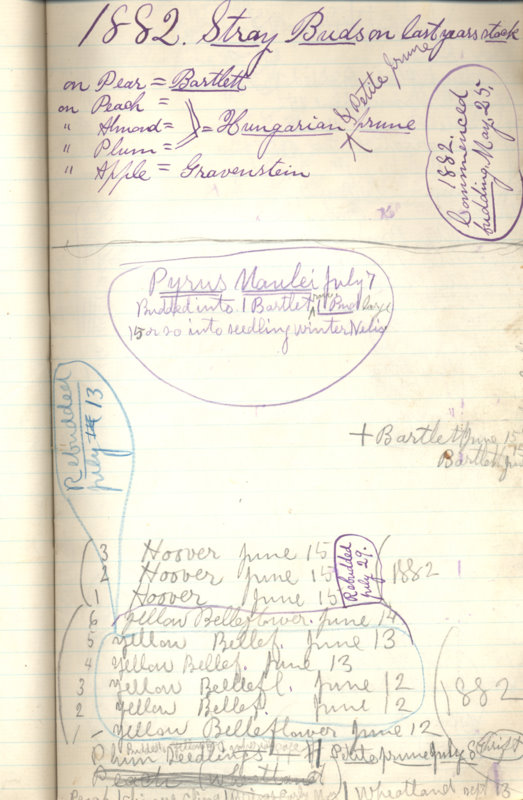 1882. Stray Buds on last years stock
on Pear = Bartlett
on Peach =
" Almond = = Hungarian & Petite prune prune
" Plum =
" Apple = Gravenstein
1882.
Commenced
budding May 25.
Pyrus Maulei July 7
Budded into 1 Bartlet 1 large
15 or so into seedling winter Nelis
Rebudded
July 13
+ Bartlet June 15
Bartlet
3 Hoover June 15
2 Hoover June 15
1 Hoover June 15
Rebudded
July 29.
1882
6 Yellow Belleflower. June 14
5 yellow Bellef. June 13
4 yellow Bellef. June 13
3 yellow Bellefl. June 12
2 yellow Bellef. June 12
1 - yellow Belleflower June 12
1882
Plum Seedlings Petite prune July 8
Peach
1 Wheatland Sept 13